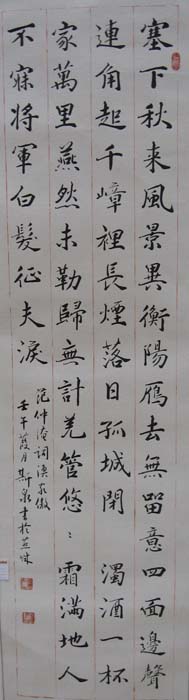 塞下秋来風景異衡陽鴈去無留意四面邊聲
連角起千嶂裡長煙落日孤城閉 濁酒一杯
家萬里燕然未勒歸無計羌管悠〻霜滿地人
不寐將軍白髮征夫淚
范仲淹詞漁家傲
壬午葭月斯泉書於